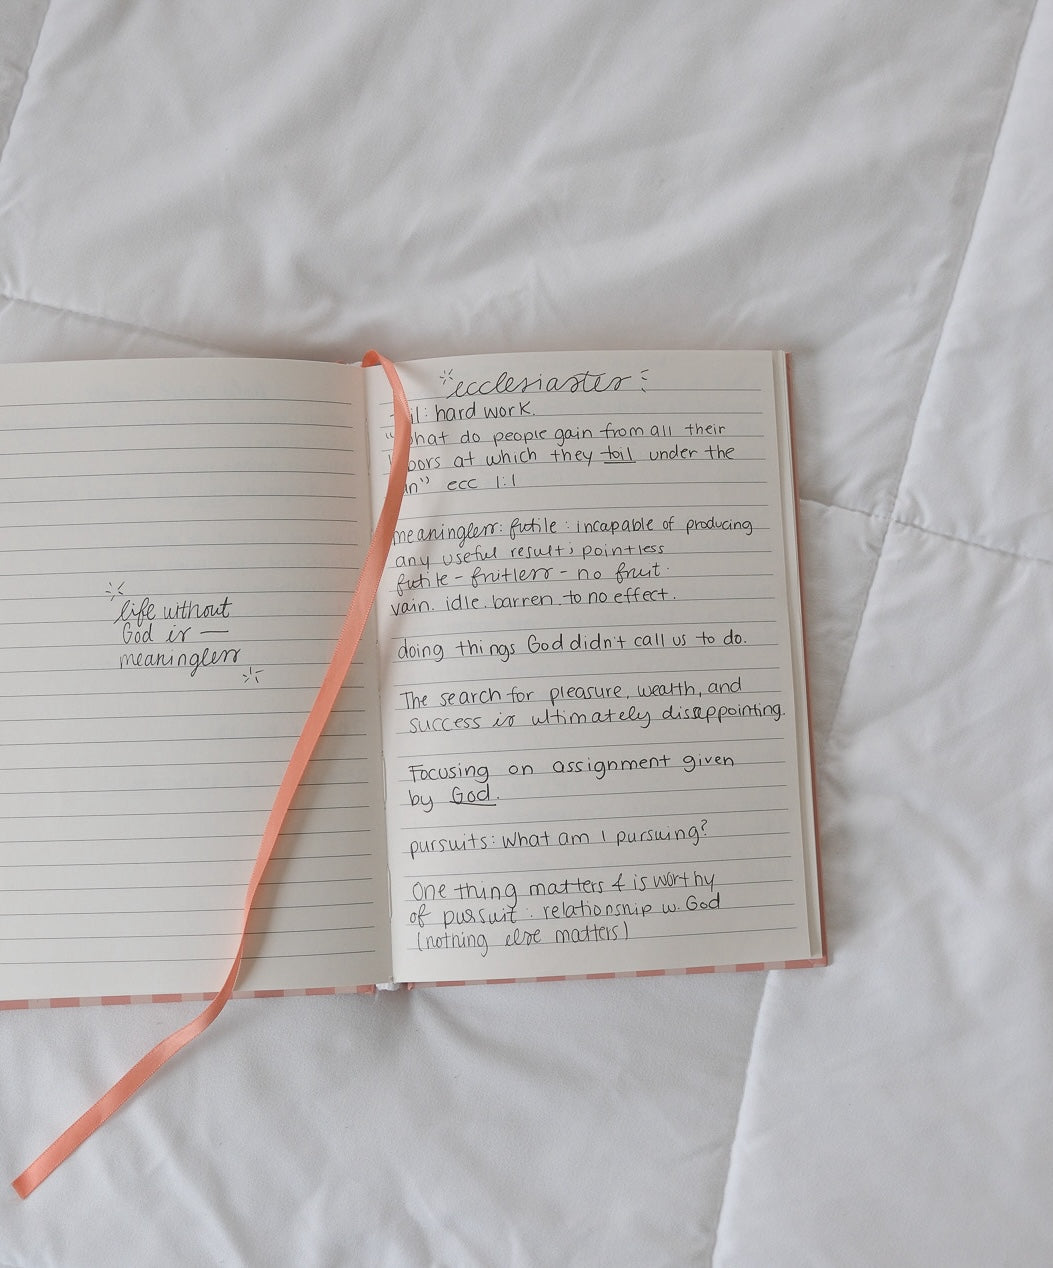 life without
God is —
meaningless
ecclesiastes
il: hard work.
"what do people gain from all their
labors at which they toil under the
un" ecc 1:1
meaningless: futile: incapable of producing
any useful result; pointless
futile - fruitless - no fruit.
vain. idle. barren. to no effect.
doing things God didn't call us to do.
The search for pleasure, wealth, and
success is ultimately disappointing.
Focusing on assignment given
by God.
pursuits: what am I pursuing?
One thing matters & is worthy
of pursuit: relationship w. God
(nothing else matters)